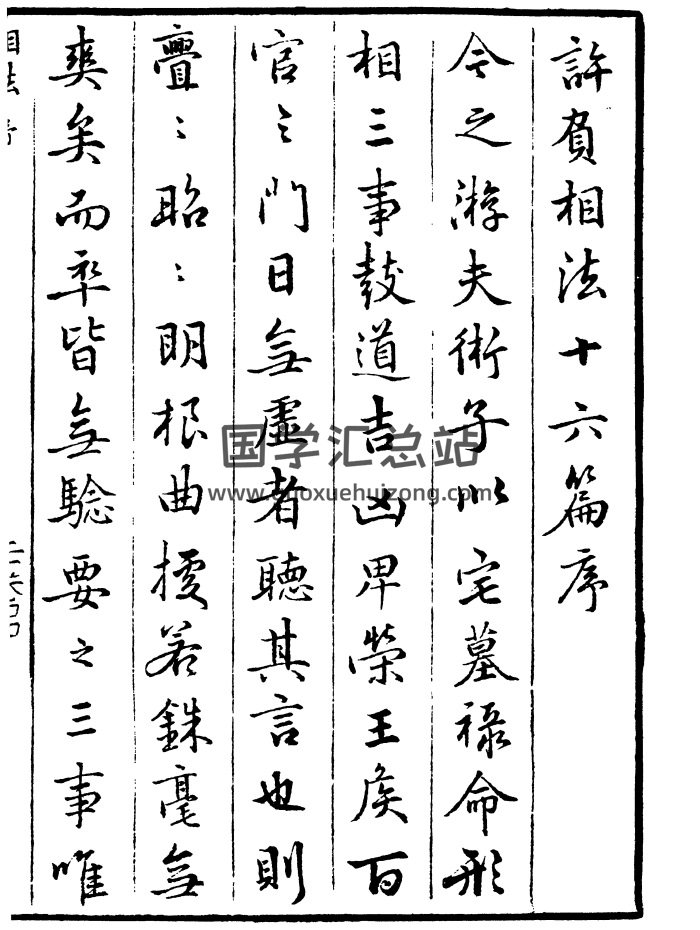 許負相法十六篇序
今之游夫術子以宅墓祿命形
相三事鼓道吉凶卑榮王侯百
官之門日無虛者聽其言也則
亹〻昭〻明根曲援若銖毫無
爽矣而率皆無驗要之三事唯
相法 序
国学汇总站
www.guoxuehuizong.com